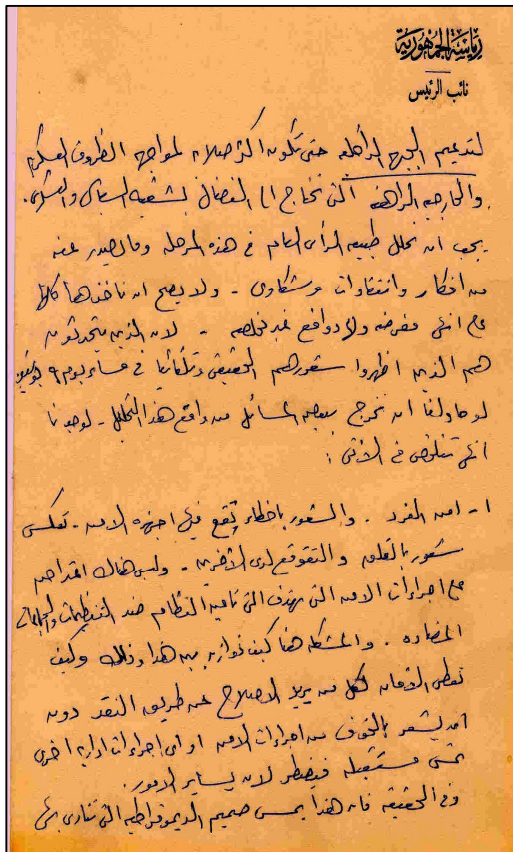 رياسة الجمهورية
نائب الرئيس
لتدعيم الجبهه الداخله حتى تكون اكثر صلابه لمواجهه الظروف العسكريه
والخارجيه الراهنه التى تحتاج الى النضال بشقيه السياسى والعسكرى.
يجب ان نحلل طبيعه الرأى العام فى هذه المرحله وما يصدر عنه
من افكار وانتقادات وشكاوى - ولا يصح ان ناخذها كلها
على انها مغرضه ولا دوافع غير مخلصه - لان الذين يتحدثون
هم الذين اظهروا شعورهم الحقيقى وتلقائيا فى مساء يوم ٩ يونيو
لو حاولنا ان نخرج ببعض المسائل من واقع هذا التحليل - لوجدنا
انها تتلخص فى الآتى :
١- امن الفرد . والشعور باخطاء تقع فيها اجهزه الامن - تعكس
شعور بالقلق والتقوقع لدى الآخرين - وليس هناك اعتراض
على اجراءات الامن التى تهدف الى تامين النظام ضد التنظيمات والجماعات
المضاده . والمشكله هنا كيف نوازن بين هذا وذلك وكيف
نعطى الامان لكل من يريد الاصلاح عن طريق النقد دون
ان يشعر بالخوف من اجراءات الامن او اى اجراءات اداريه اخرى
تمس مستقبله فيضطر لان يساير الامور.
وفى الحقيقه فان هذا يمس صميم الديموقراطيه التى تنادى بها